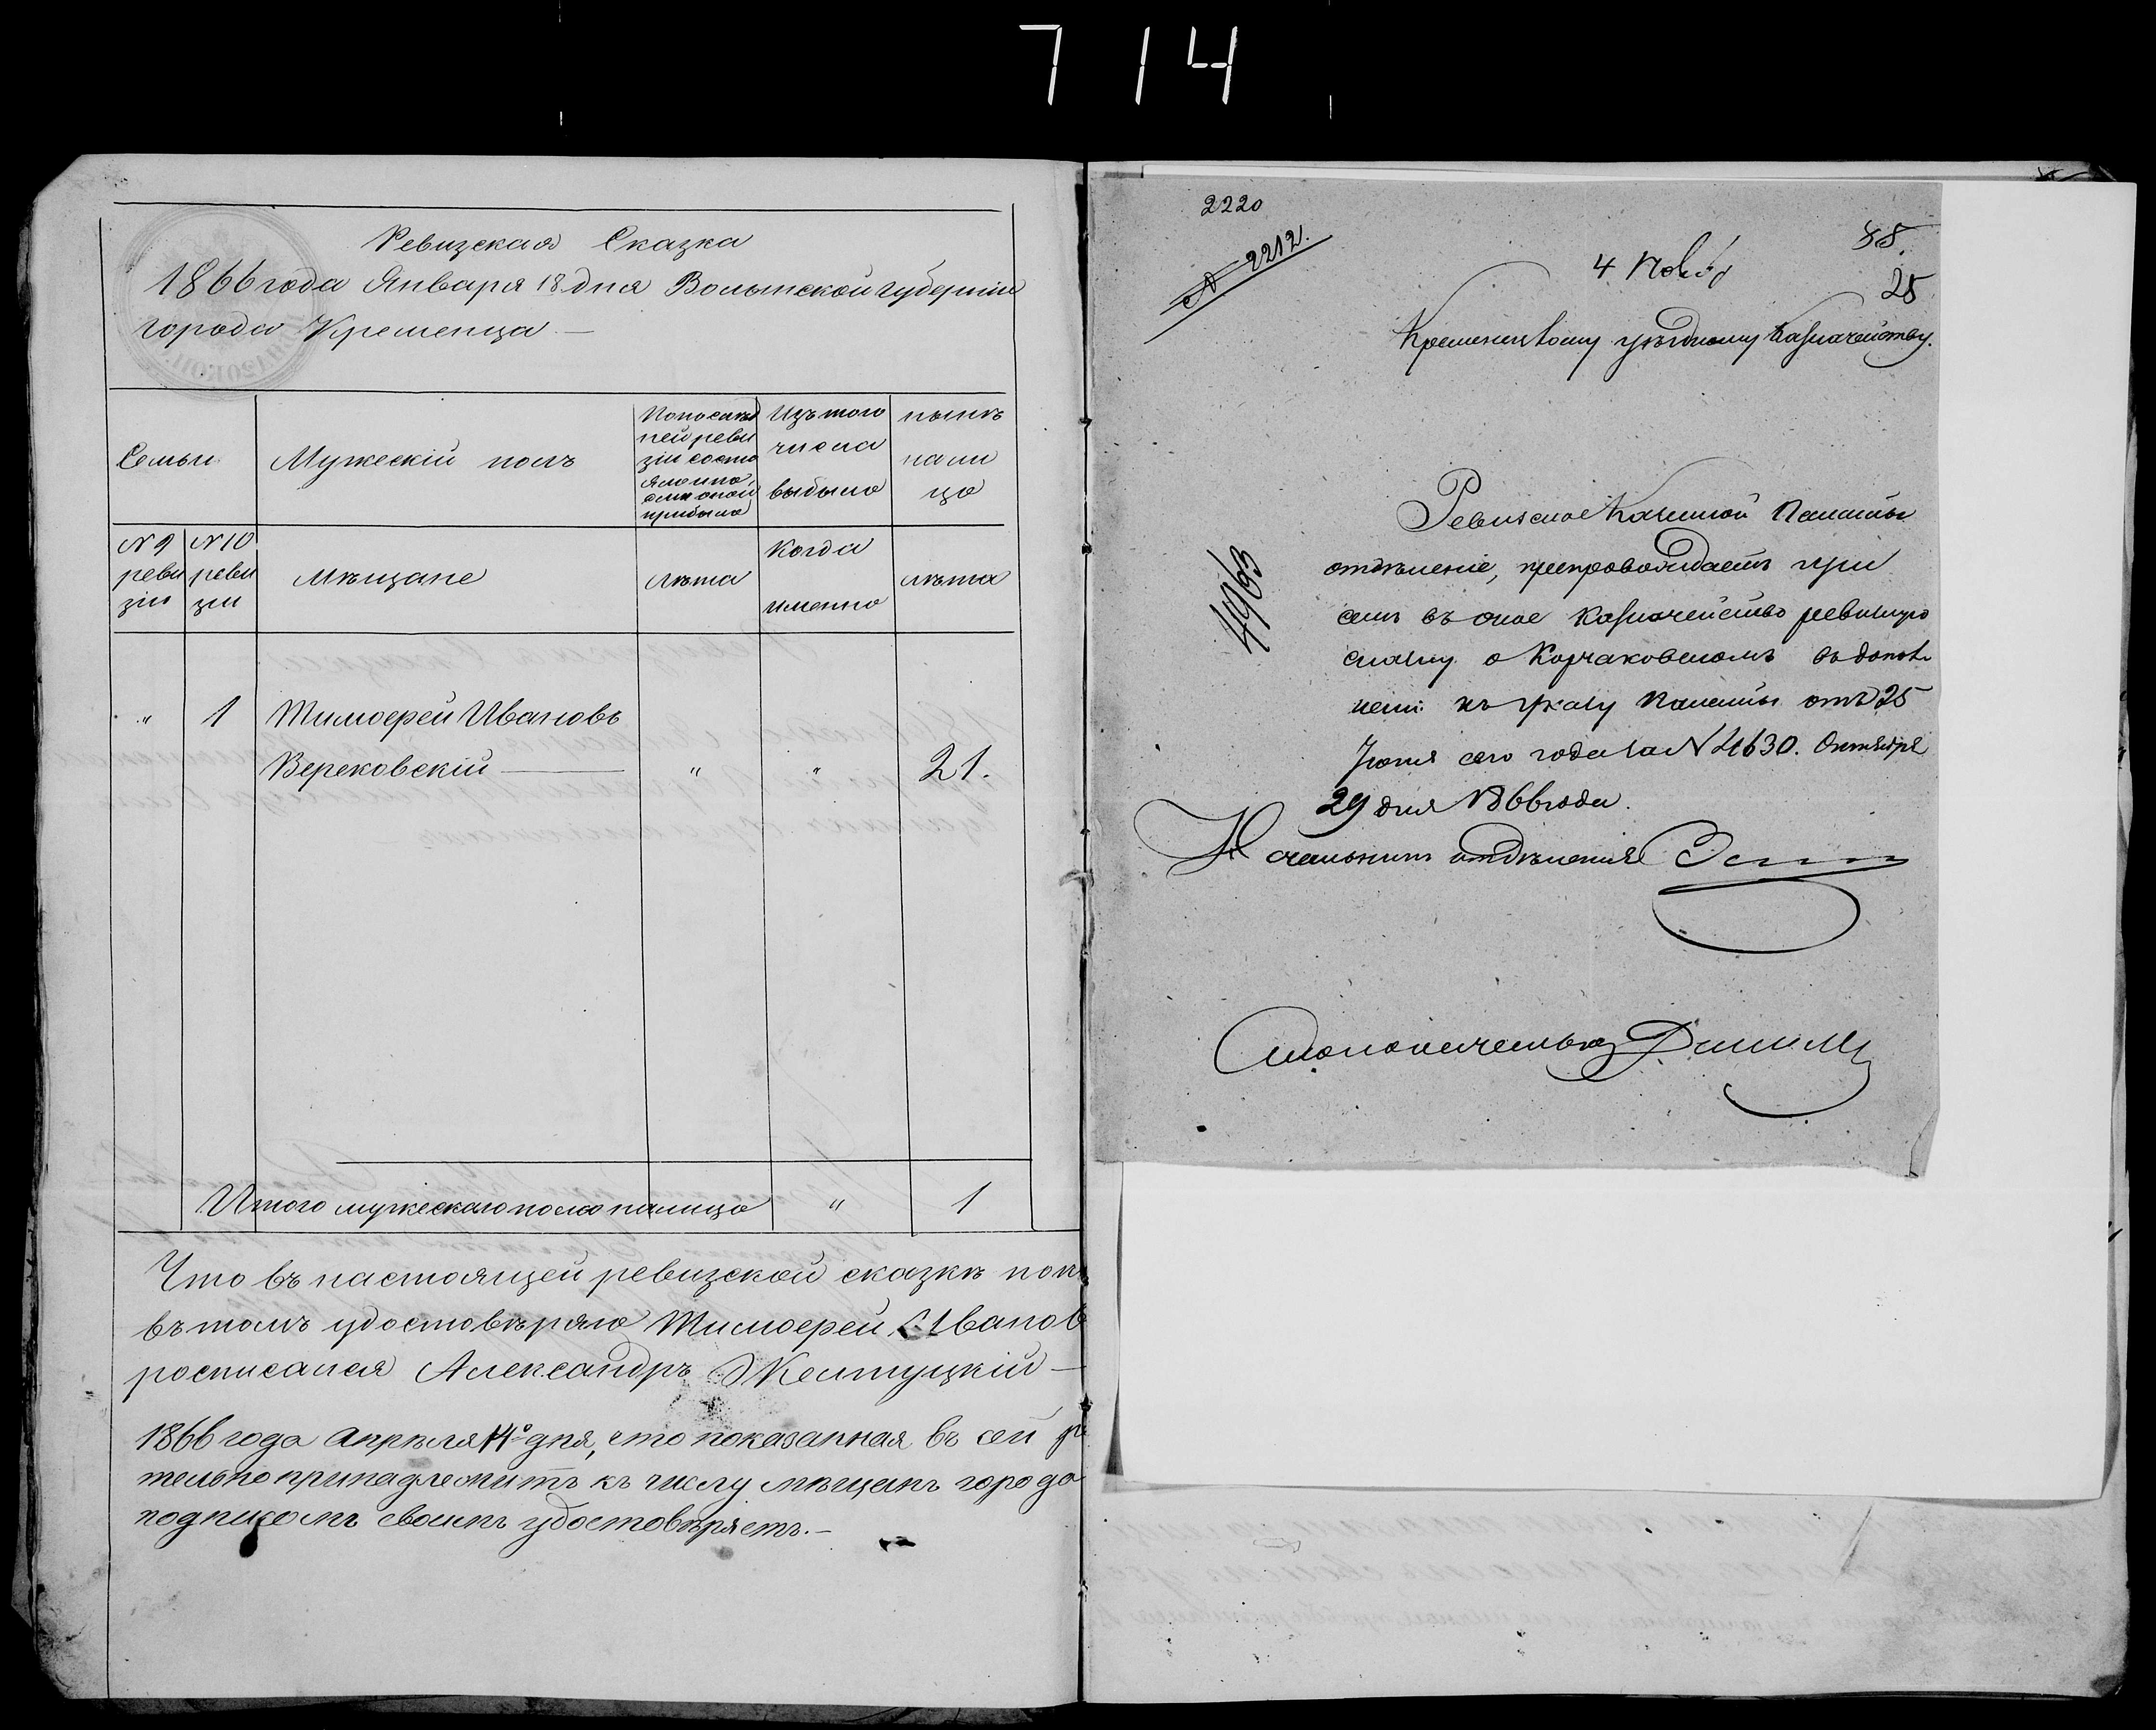 714
Ревизская Сказка
1866 года Января 18 дня Волынской губернии
города Кременца —
Семьи
Мужескій полъ
По послѣд
ней реви
зіи состо
яло и по
слѣ оной
прибыло
Изъ того
числа
выбыло
нынѣ
на ли
цо
№ 9
реви
зіи
№ 10
реви
зіи
Мѣщане
лѣта
Когда
именно
лѣта
" 1 Тимофей Ивановъ
Верековскій — " " 21.
Итого мужескаго пола налицо " 1
Что въ настоящей ревизской сказкѣ пок
въ томъ удостовѣряю Тимофей Иванов
росписался Александръ Желтуцкій —
1866 года Апрѣля 14 дня, что показанная въ сей ре
тельно принадлежитъ къ числу мѣщанъ города
подписомъ своимъ удостовѣряетъ. —
2220
№ 2212.
88.
4 Нояб
25
Кременецкому уѣздному Казначейству.
4963
Ревизское Казенной Палаты
отдѣленіе, препровождаетъ при
семъ въ оное Казначейство ревизскую
сказку о Корчаковскомъ въ допол
неніе къ указу Палаты отъ 25
Іюня сего года за № 21630. Октября
29 дня 1866 года.
Начальникъ отдѣленія
Столоначальникъ